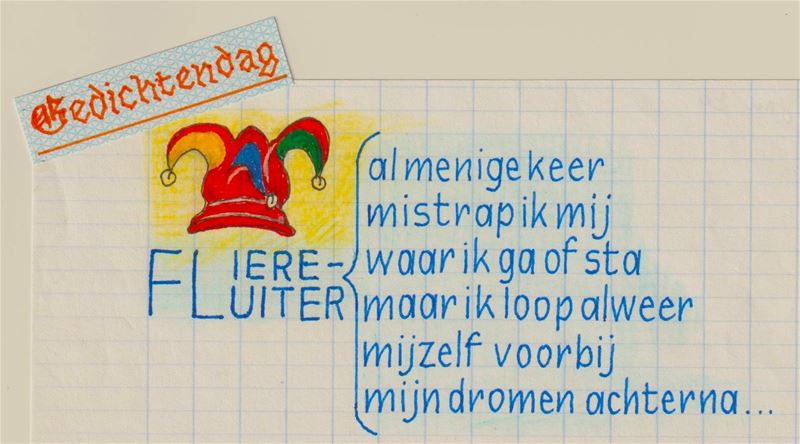 Gedichtendag
FLIERE-
FLUITER
al menige keer
mistrap ik mij
waar ik ga of sta
maar ik loop alweer
mijzelf voorbij
mijn dromen achterna...